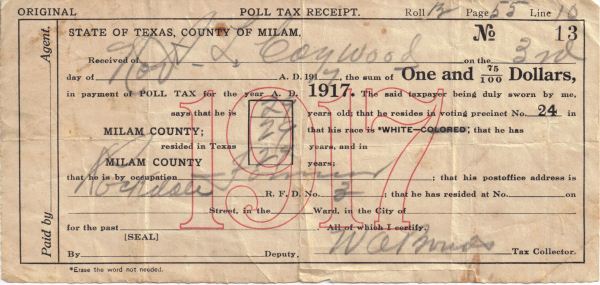 ORIGINAL POLL TAX RECEIPT. Roll 12 Page 55 Line 10
STATE OF TEXAS, COUNTY OF MILAM. No 13
Received of L. Caywood on the 3rd
day of Nov A. D. 1917, the sum of One and 75/100 Dollars,
in payment of POLL TAX for the year A. D. 1917. The said taxpayer being duly sworn by me,
says that he is 27 years old; that he resides in voting precinct No. 24 in
MILAM COUNTY; 27 that his race is *WHITE—COLORED; that he has
resided in Texas years, and in
MILAM COUNTY 27 years;
that he is by occupation Farmer ; that his postoffice address is
Rockdale R. F. D. No. 3 ; that he has resided at No. on
Street, in the Ward, in the City of
for the past All of which I certify.
[SEAL]
By Deputy. Tax Collector.
*Erase the word not needed.
Paid by Agent.
1917